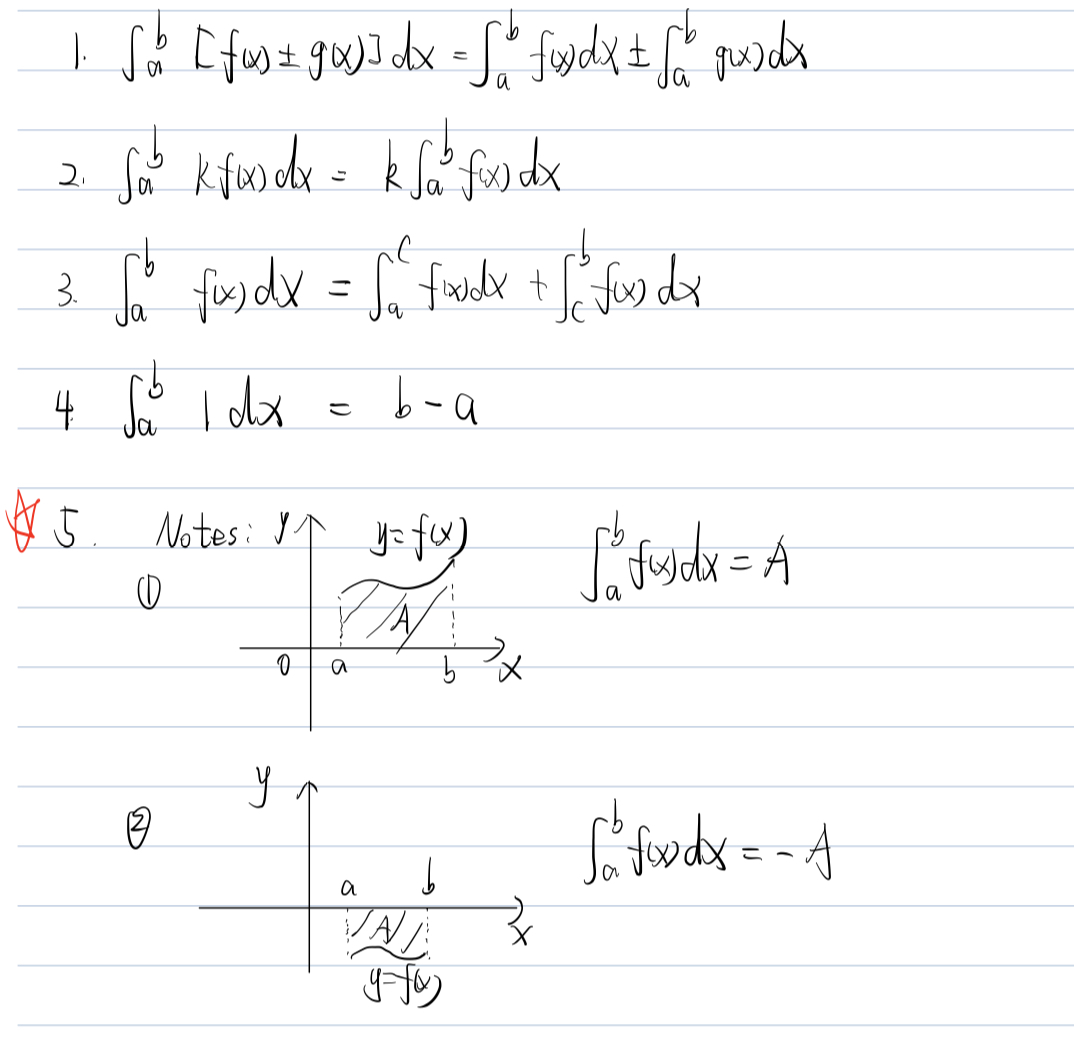 1. ∫ₐᵇ [f(x) ± g(x)] dx = ∫ₐᵇ f(x)dx ± ∫ₐᵇ g(x)dx
2. ∫ₐᵇ kf(x)dx = k∫ₐᵇ f(x)dx
3. ∫ₐᵇ f(x)dx = ∫ₐᶜ f(x)dx + ∫꜀ᵇ f(x)dx
4. ∫ₐᵇ 1 dx = b - a
5. Notes: y y=f(x) ∫ₐᵇ f(x)dx = A
①
A
0 a b x
y
② ∫ₐᵇ f(x)dx = - A
a b
A x
y=f(x)